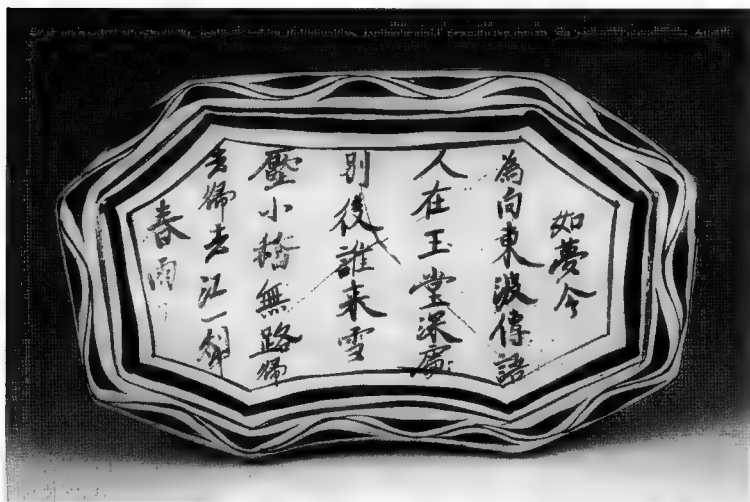 如夢令
為向東波傳語
人在玉堂深處
別後誰来雪
壓小橋無路歸
去歸去江一犂
春雨